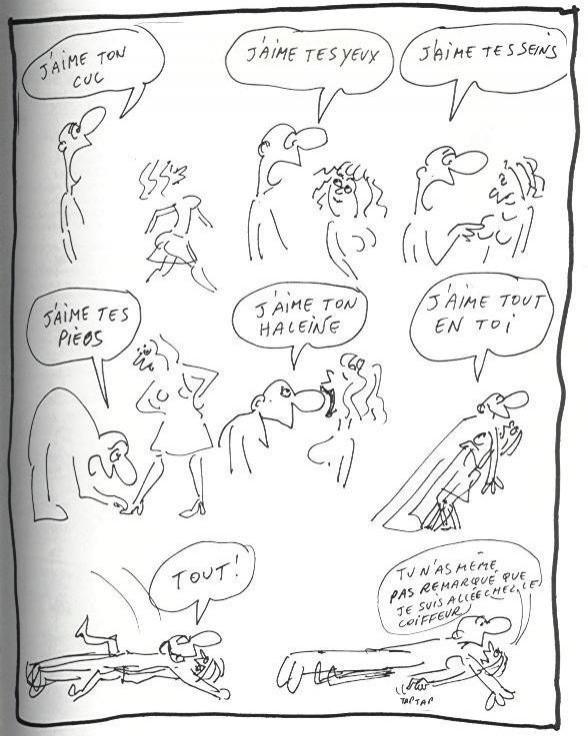 J'AIME TON
CUC
J'AIME TES YEUX
J'AIME TES SEINS
J'AIME TES
PIEDS
J'AIME TON
HALEINE
J'AIME TOUT
EN TOI
TOUT!
TU N'AS MÊME
PAS REMARQUÉ QUE
JE SUIS ALLÉE CHEZ LE
COIFFEUR
TAP TAP